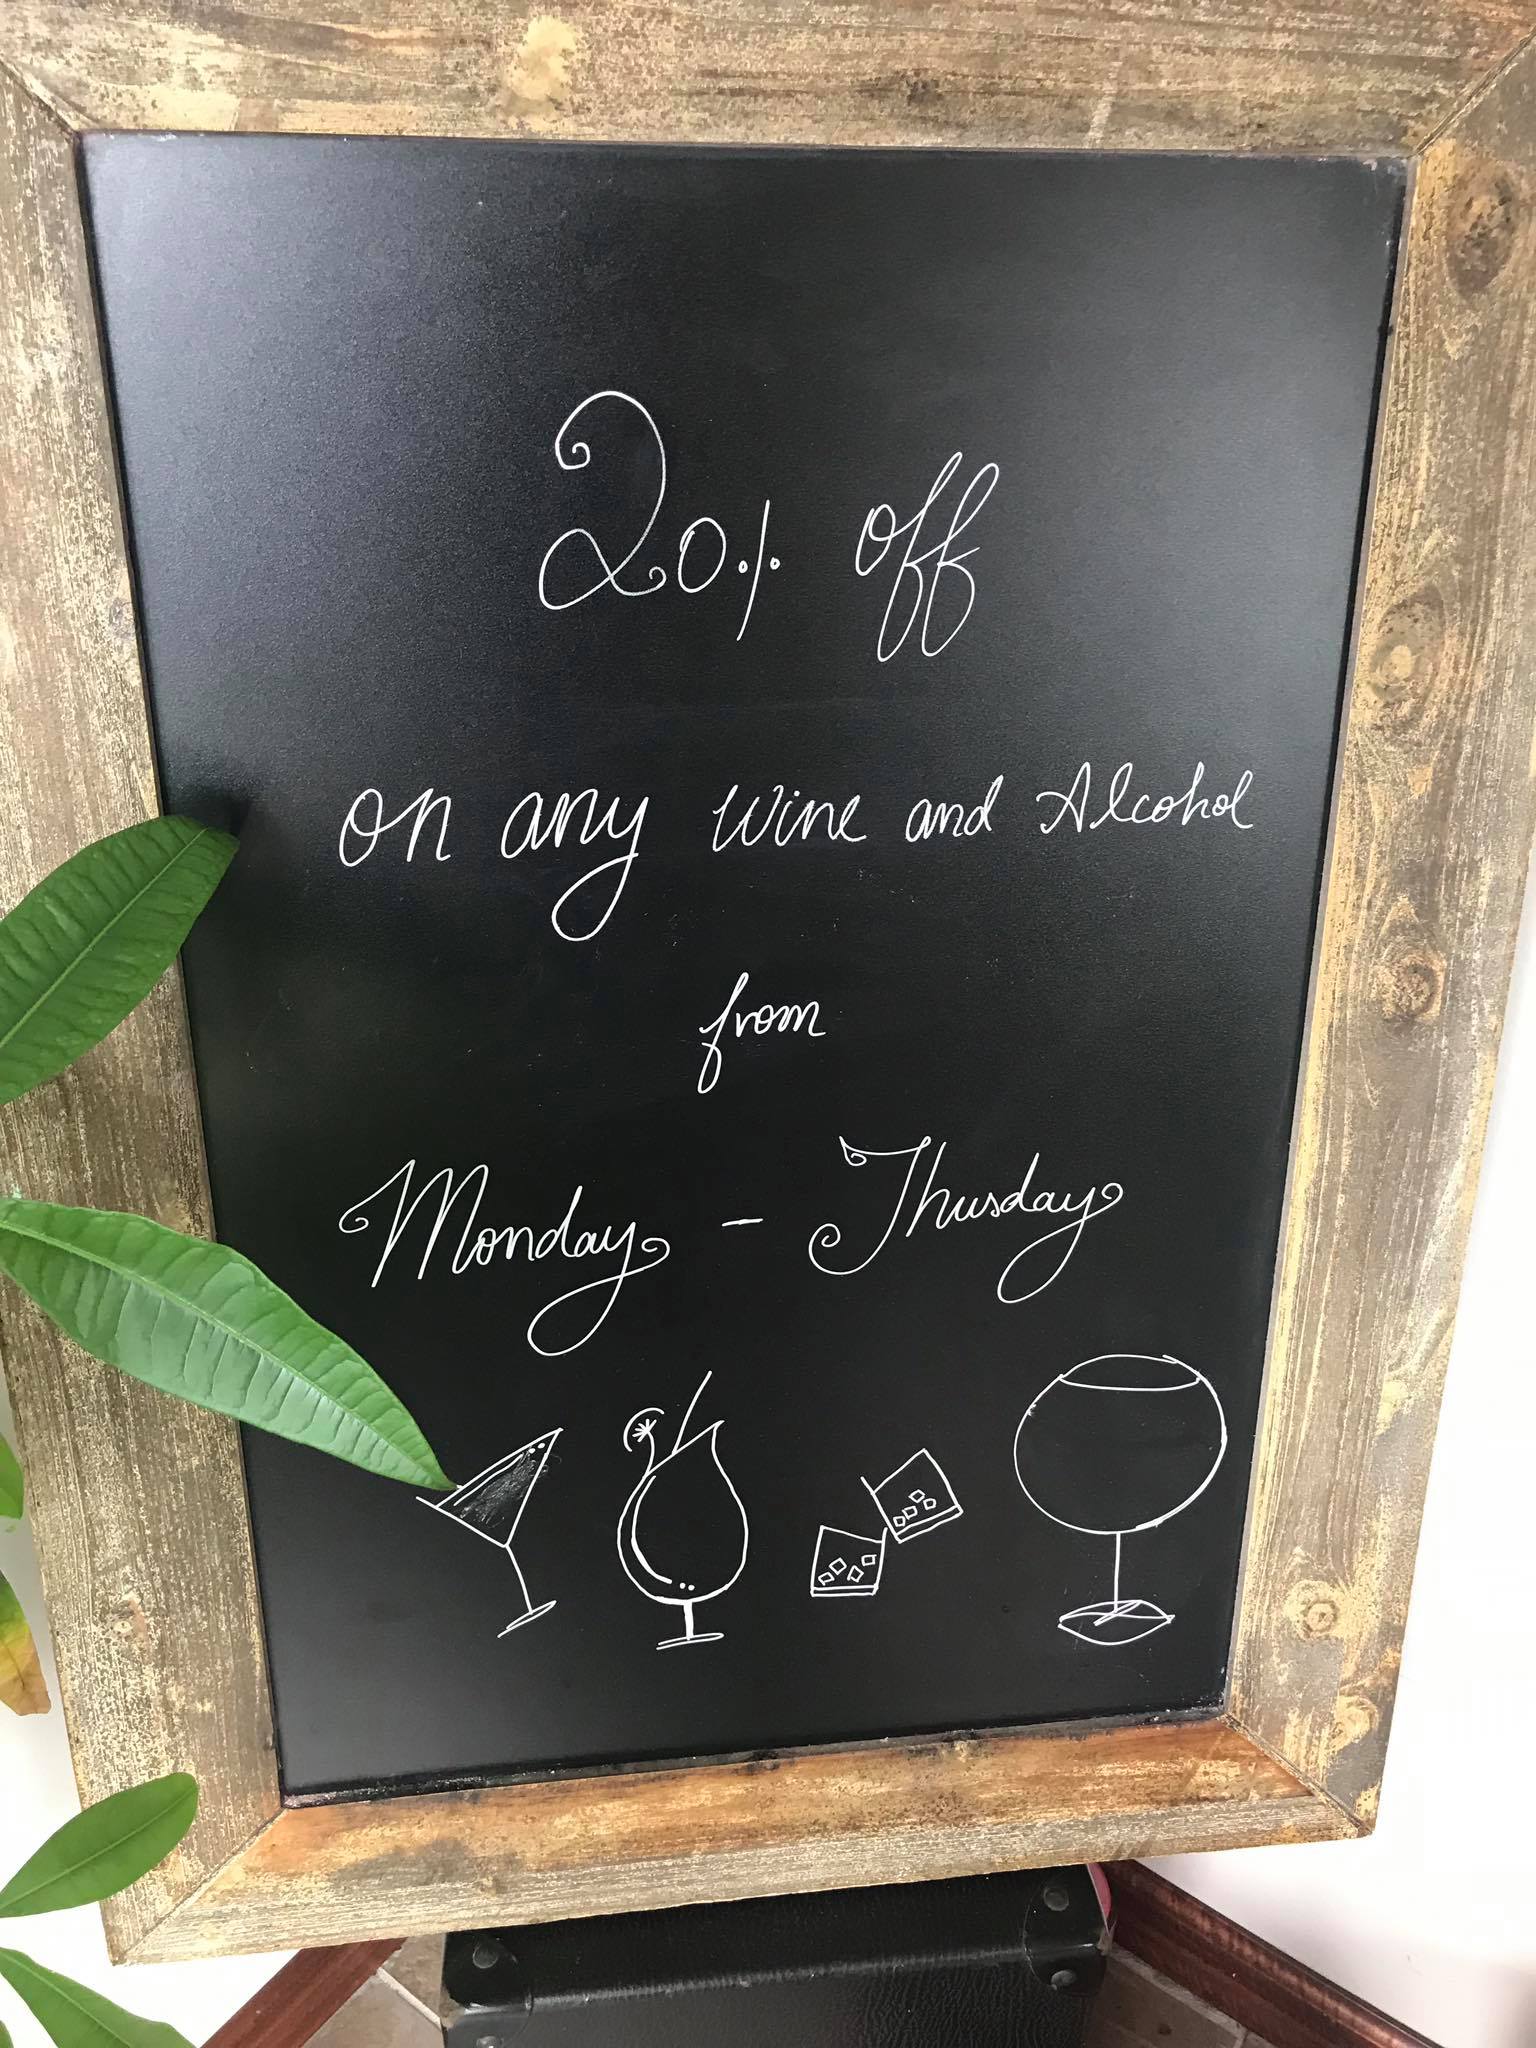 20% off
on any wine and Alcohol
from
Monday - Thusday